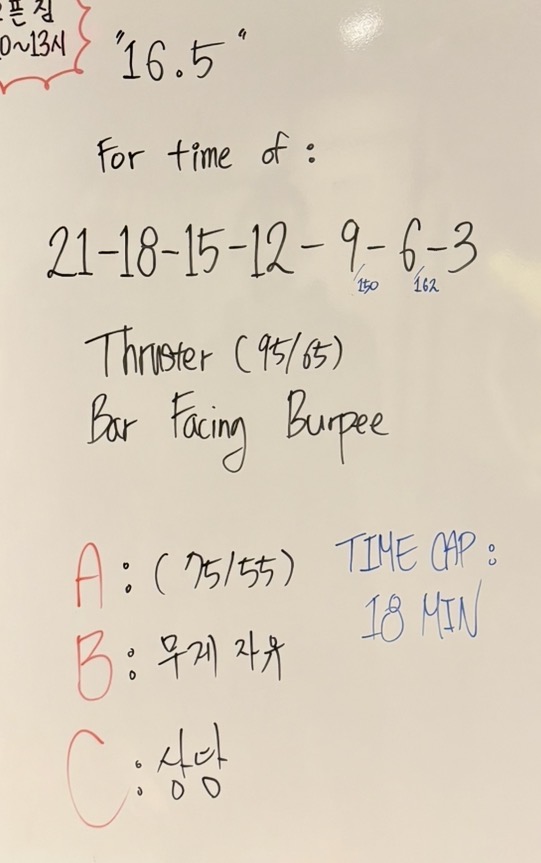 오픈짐
0~13시
"16.5"
For time of :
21-18-15-12-9-6-3
150 162
Thruster (95/65)
Bar Facing Burpee
A : (75/55)
TIME CAP :
18 MIN
B : 무게 자유
C : 상당